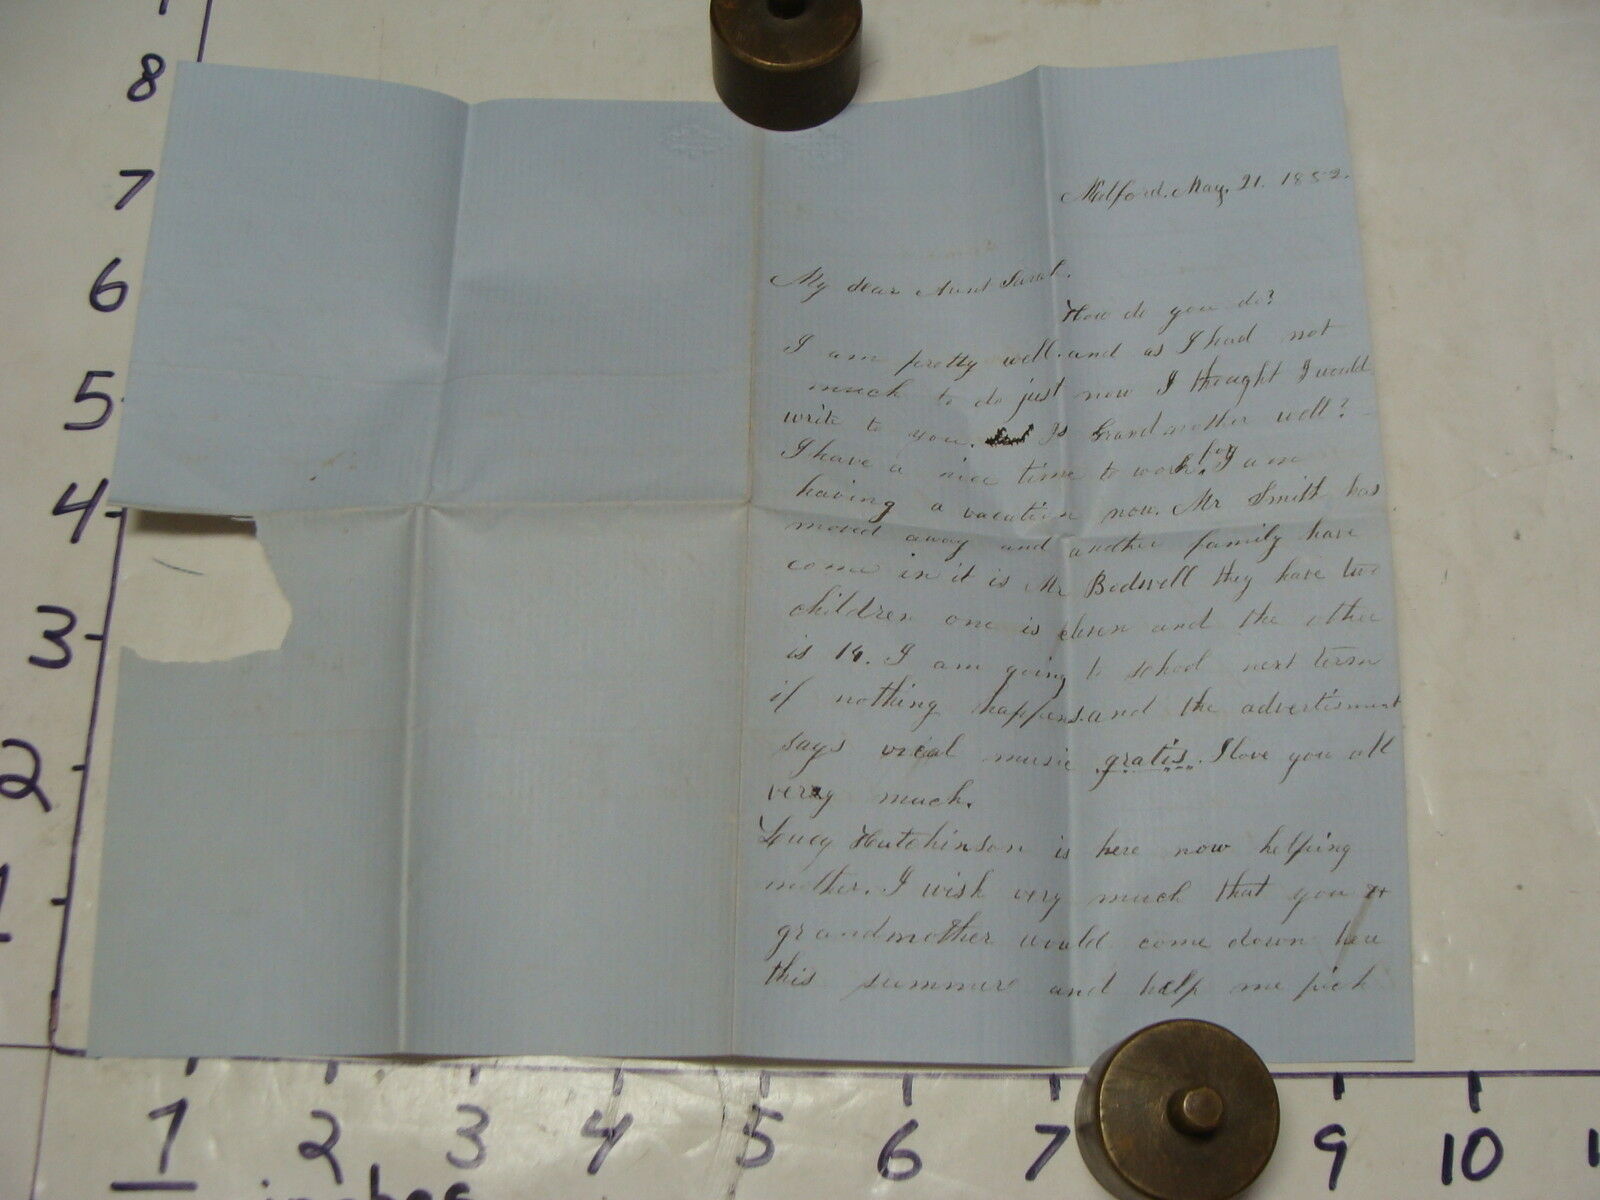 8
7
6
5
4
3
2
1
Medford. May. 21. 1852.
My dear Aunt Sarah.
How do you do?
I am pretty well. and as I had not
much to do just now I thought I would
write to you. Is Grandmother well?
I have a nice time to work, for I am
having a vacation now. Mr Smith has
moved away and another family have
come in it is Mr Bodwell they have two
children one is eleven and the other
is 14. I am going to school next term
if nothing happens. and the advertisment
says vocal music gratis. I love you all
very much.
Lucy Hutchinson is here now helping
mother. I wish very much that you &
grandmother would come down here
this summer and help me pick
1 2 3 4 5 6 7 9 10
inches